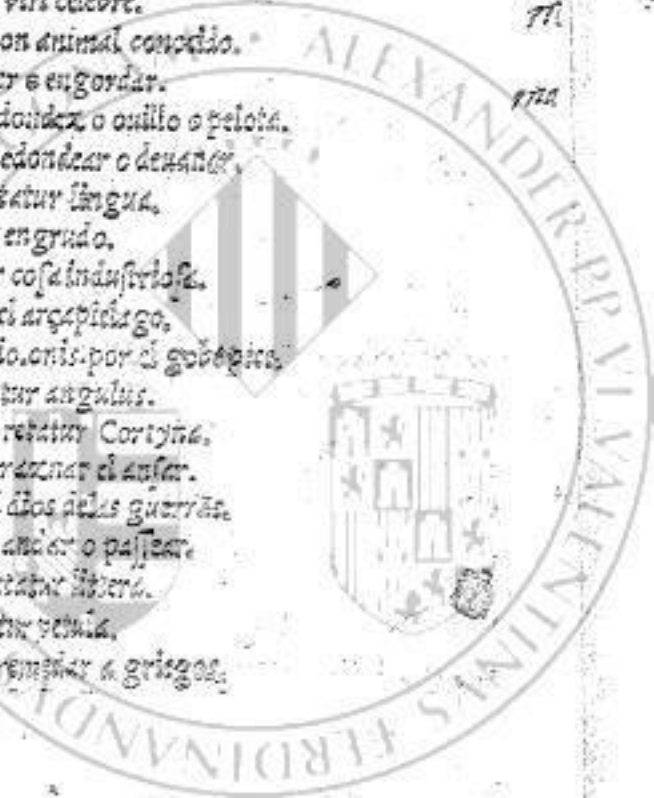 viri celebre.
on animal conocido.
r o engordar.
dondez o ouillo o pelota.
edondear o deuanar.
tatur lingua.
engrudo.
r cosa industriosa.
el arçapielago.
do.onis.por el gobépice.
tur angulus.
retatur Cortyna.
raznar el ansar.
dios delas guerras.
andar o passear.
rtatur littera.
tur vetula.
remedar a griegos.
m
gna
ALEXANDER PP VI VALENTINVS FERDINANDV